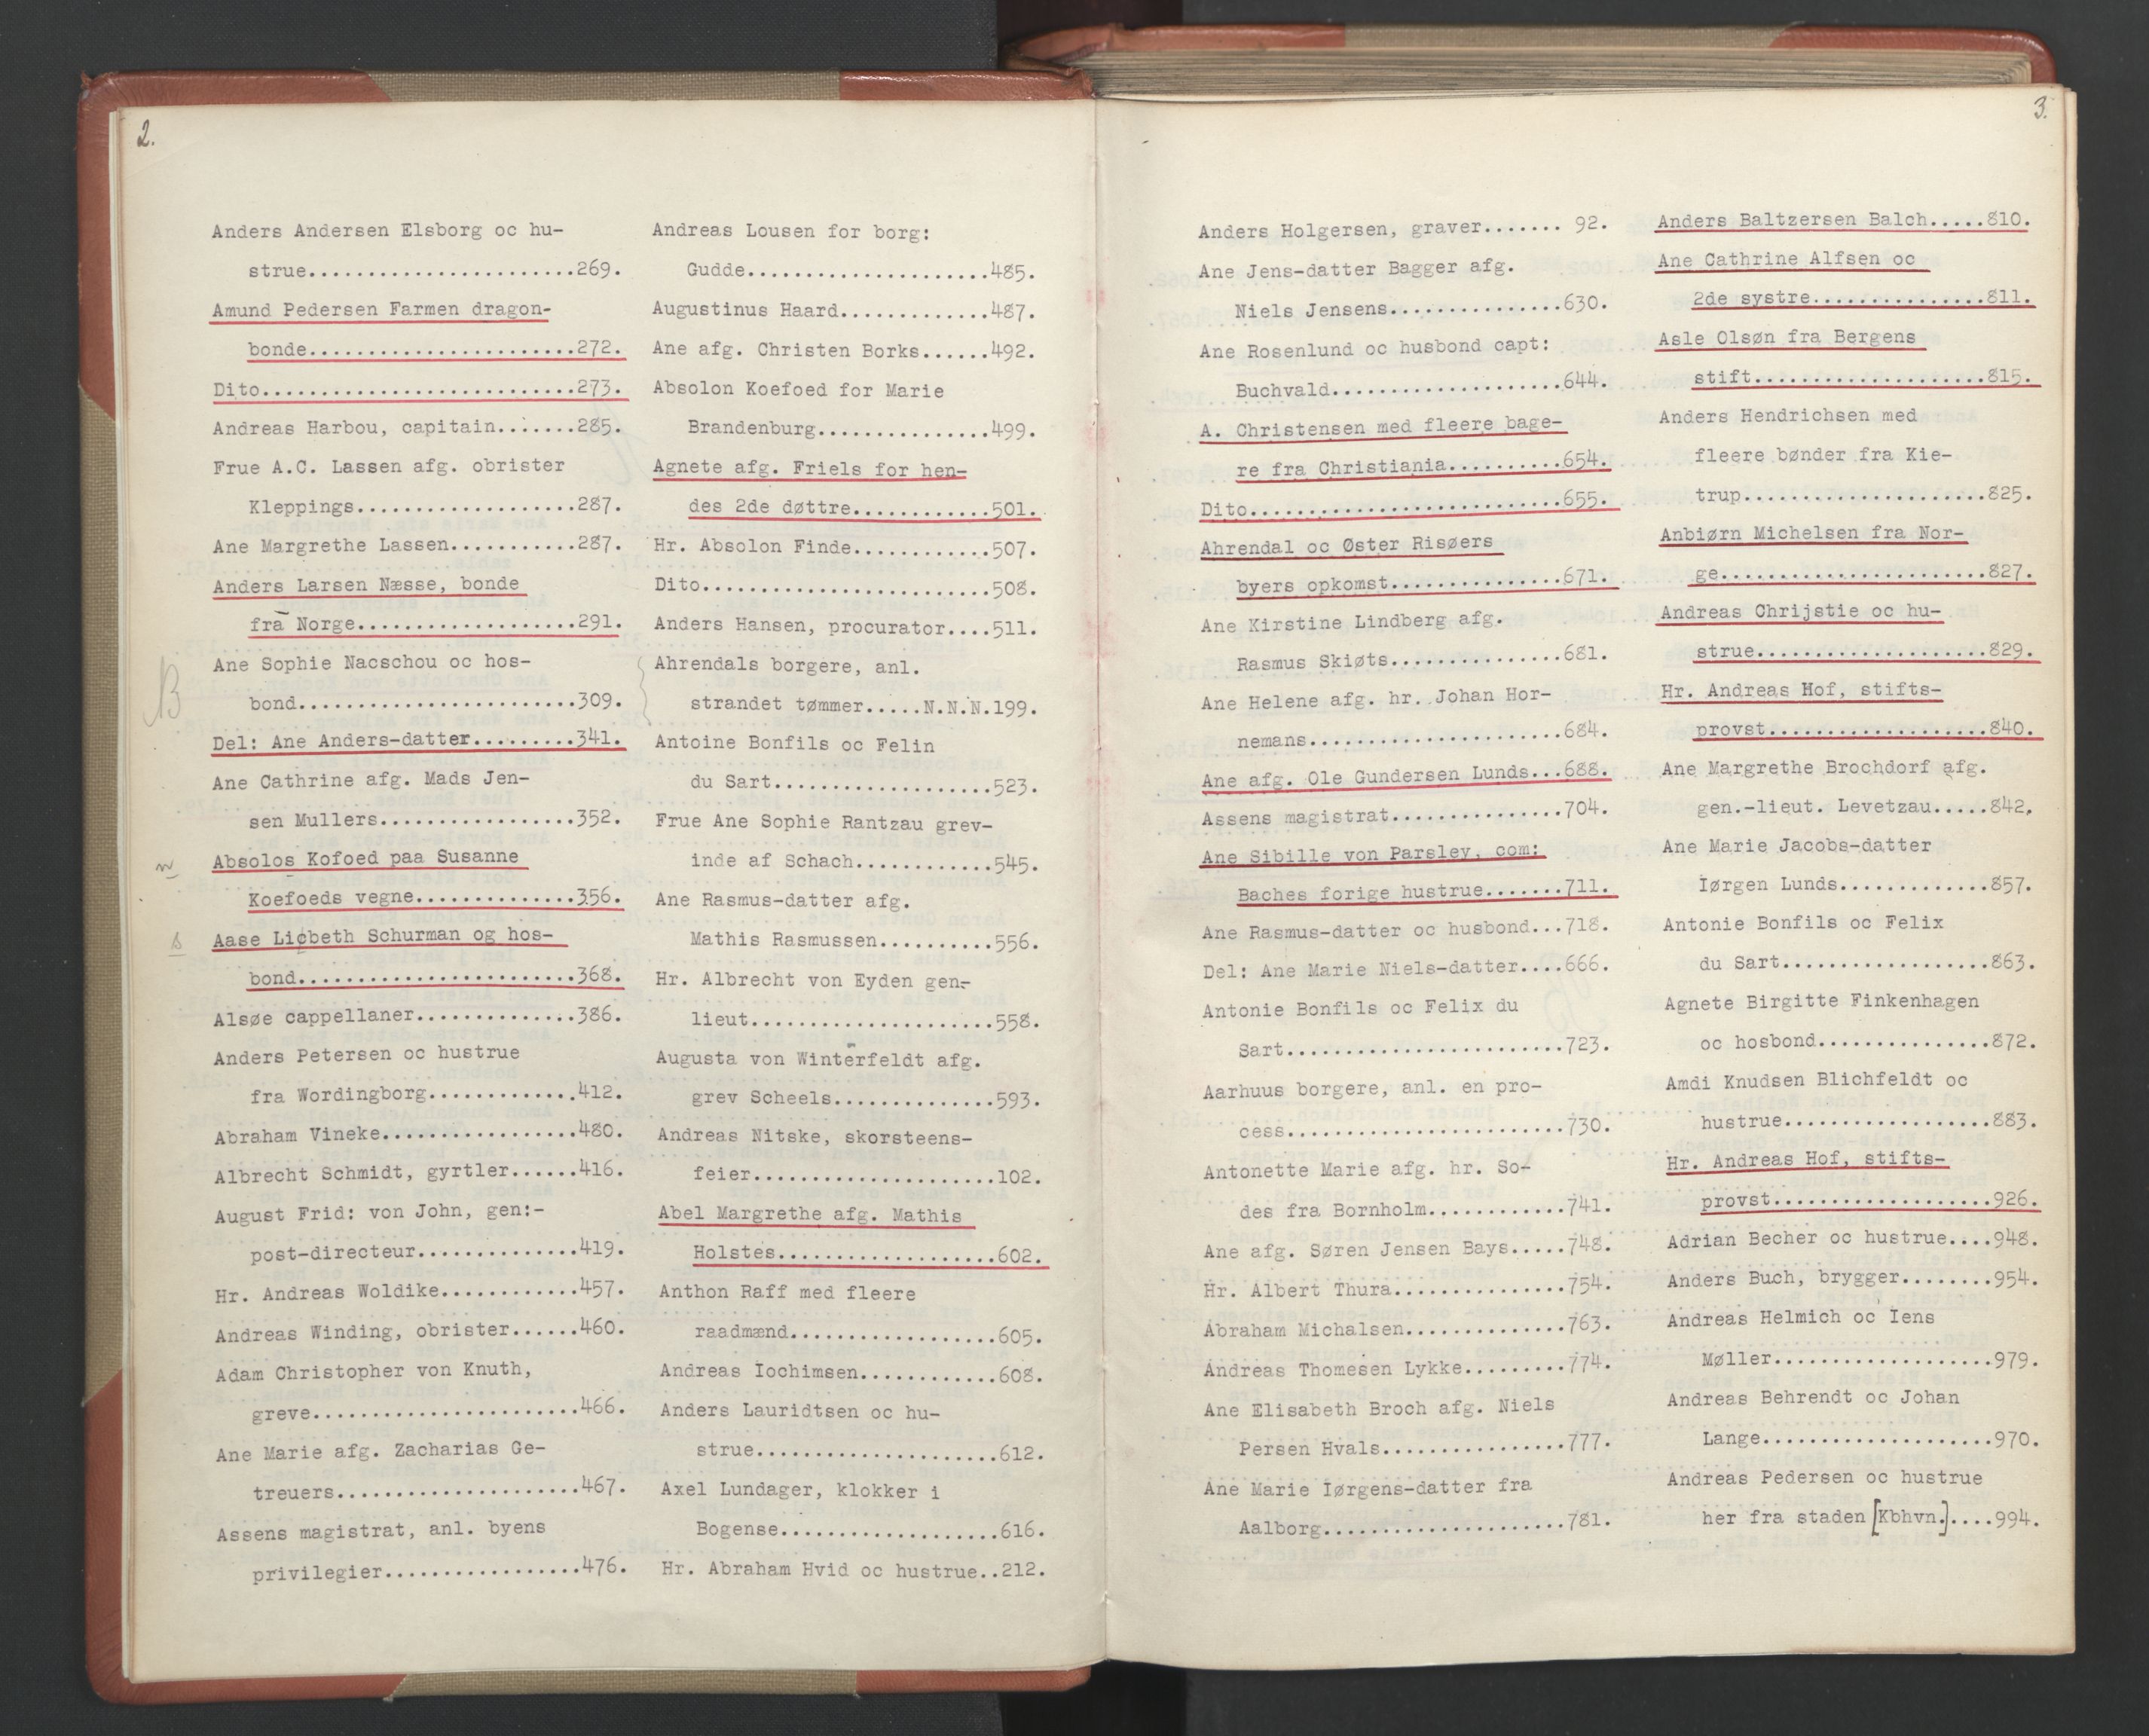 2.
Anders Andersen Elsborg oc hu-
strue.......................269.
Amund Pedersen Farmen dragon-
bonde.......................272.
Dito...........................273.
Andreas Harbou, capitain.......285.
Frue A.C. Lassen afg. obrister
Kleppings...................287.
Ane Margrethe Lassen...........287.
Anders Larsen Næsse, bonde
fra Norge...................291.
Ane Sophie Nacschou oc hos-
bond........................309.
Del: Ane Anders-datter.........341.
Ane Cathrine afg. Mads Jen-
sen Mullers.................352.
Absolos Kofoed paa Susanne
Koefoeds vegne..............356.
Aase Licbeth Schurman og hos-
bond........................368.
Alsøe cappellaner..............386.
Anders Petersen oc hustrue
fra Wordingborg.............412.
Abraham Vineke.................480.
Albrecht Schmidt, gyrtler......416.
August Frid: von John, gen:-
post-directeur..............419.
Hr. Andreas Woldike............457.
Andreas Winding, obrister......460.
Adam Christopher von Knuth,
greve.......................466.
Ane Marie afg. Zacharias Ge-
treuers.....................467.
Assens magistrat, anl. byens
privilegier.................476.
Andreas Lousen for borg:
Gudde.....................485.
Augustinus Haard.............487.
Ane afg. Christen Borks......492.
Absolon Koefoed for Marie
Brandenburg...............499.
Agnete afg. Friels for hen-
des 2de døttre............501.
Hr. Absolon Finde............507.
Dito.........................508.
Anders Hansen, procurator....511.
Ahrendals borgere, anl.
strandet tømmer.....N.N.N.199.
Antoine Bonfils oc Felin
du Sart...................523.
Frue Ane Sophie Rantzau grev-
inde af Schach............545.
Ane Rasmus-datter afg.
Mathis Rasmussen..........556.
Hr. Albrecht von Eyden gen:-
lieut.....................558.
Augusta von Winterfeldt afg.
grev Scheels..............593.
Andreas Nitske, skorsteens-
feier.....................102.
Abel Margrethe afg. Mathis
Holstes...................602.
Anthon Raff med fleere
raadmænd..................605.
Andreas Iochimsen............608.
Anders Lauridtsen oc hu-
strue.....................612.
Axel Lundager, klokker i
Bogense...................616.
Hr. Abraham Hvid oc hustrue..212.
3.
Anders Holgersen, graver....... 92.
Ane Jens-datter Bagger afg.
Niels Jensens...............630.
Ane Rosenlund oc husbond capt:
Buchvald....................644.
A. Christensen med fleere bage-
re fra Christiania..........654.
Dito...........................655.
Ahrendal oc Øster Risøers
byers opkomst...............671.
Ane Kirstine Lindberg afg.
Rasmus Skiøts...............681.
Ane Helene afg. hr. Johan Hor-
nemans......................684.
Ane afg. Ole Gundersen Lunds...688.
Assens magistrat...............704.
Ane Sibille von Parsley, com:
Baches forige hustrue.......711.
Ane Rasmus-datter oc husbond...718.
Del: Ane Marie Niels-datter....666.
Antonie Bonfils oc Felix du
Sart........................723.
Aarhuus borgere, anl. en pro-
cess........................730.
Antonette Marie afg. hr. So-
des fra Bornholm............741.
Ane afg. Søren Jensen Bays.....748.
Hr. Albert Thura...............754.
Abraham Michalsen..............763.
Andreas Thomesen Lykke.........774.
Ane Elisabeth Broch afg. Niels
Persen Hvals................777.
Ane Marie Iørgens-datter fra
Aalborg.....................781.
Anders Baltzersen Balch.....810.
Ane Cathrine Alfsen oc
2de systre...............811.
Asle Olsøn fra Bergens
stift....................815.
Anders Hendrichsen med
fleere bønder fra Kie-
trup.....................825.
Anbiørn Michelsen fra Nor-
ge.......................827.
Andreas Chrijstie oc hu-
strue....................829.
Hr. Andreas Hof, stifts-
provst...................840.
Ane Margrethe Brochdorf afg.
gen.-lieut. Levetzau.....842.
Ane Marie Jacobs-datter
Iørgen Lunds.............857.
Antonie Bonfils oc Felix
du Sart..................863.
Agnete Birgitte Finkenhagen
oc hosbond...............872.
Amdi Knudsen Blichfeldt oc
hustrue..................883.
Hr. Andreas Hof, stifts-
provst...................926.
Adrian Becher oc hustrue....948.
Anders Buch, brygger........954.
Andreas Helmich oc Iens
Møller...................979.
Andreas Behrendt oc Johan
Lange....................970.
Andreas Pedersen oc hustrue
her fra staden [Kbhvn.]....994.